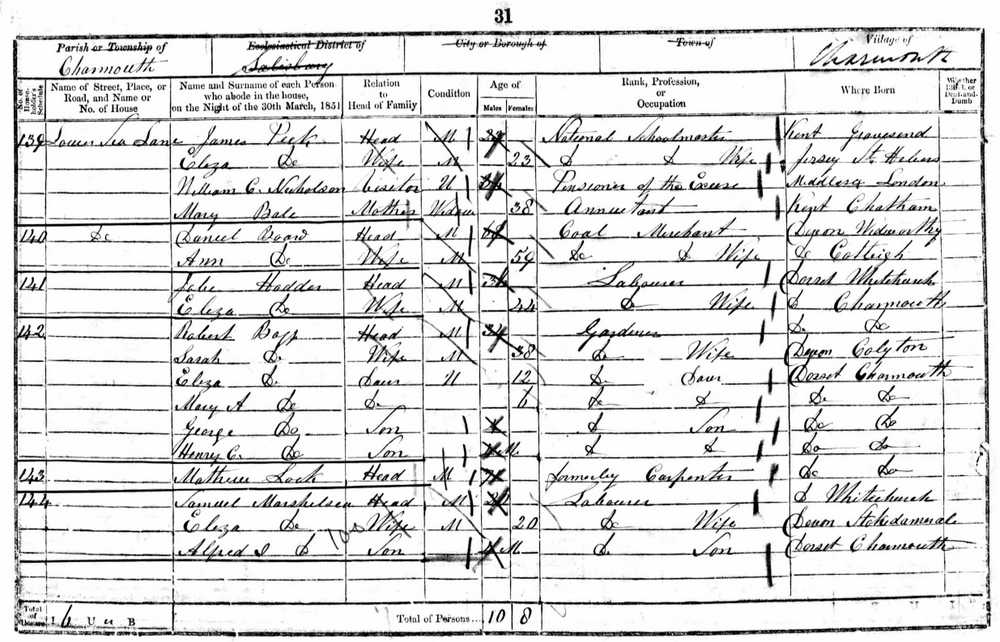 31
Parish or Township of Ecclesiastical District of City or Borough of Town of Village of
Charmouth Salisbury Charmouth
No. of House-holder's Schedule Name of Street, Place, or Road, and Name or No. of House Name and Surname of each Person who abode in the house, on the Night of the 30th March, 1851 Relation to Head of Family Condition Age of Males Females Rank, Profession, or Occupation Where Born Whether Blind, or Deaf-and-Dumb
139 Lower Sea Lane James Head M National Schoolmaster Kent Gravesend
Eliza Do Wife M 23 D D Wife Jersey St Heliers
William C. Nicholson Visitor U Pensioner of the Excise Middlesex London
Mary Bale Mother Widow 38 Annuitant Kent Chatham
140 Do Daniel Board Head M Coal Merchant Devon Widworthy
Ann Do Wife M 59 Do D Wife Do
141 Hodder Head M Labourer Dorset Whitchurch
Eliza Do Wife M 44 D Wife D Charmouth
142 Robert Head M 34 Gardener D. Do
Sarah D. Wife M 38 Do Wife Devon Colyton
Eliza D. Daur U 12 D. Daur Dorset Charmouth
Mary A Do D. 6 Do D Do Do
George Do Son D Son Do Do
Henry C. Do Son M D D Do Do
143 Mathew Lock Head M formerly Carpenter Do Do
144 Samuel Head M Labourer D Whitchurch
Eliza Do Wife M 20 Do Wife Devon
Alfred D Son M D. Son Dorset Charmouth
Total of Houses 6 U B Total of Persons... 10 8